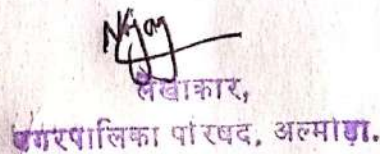 लेखाकार,
नगरपालिका परिषद, अल्मोड़ा.